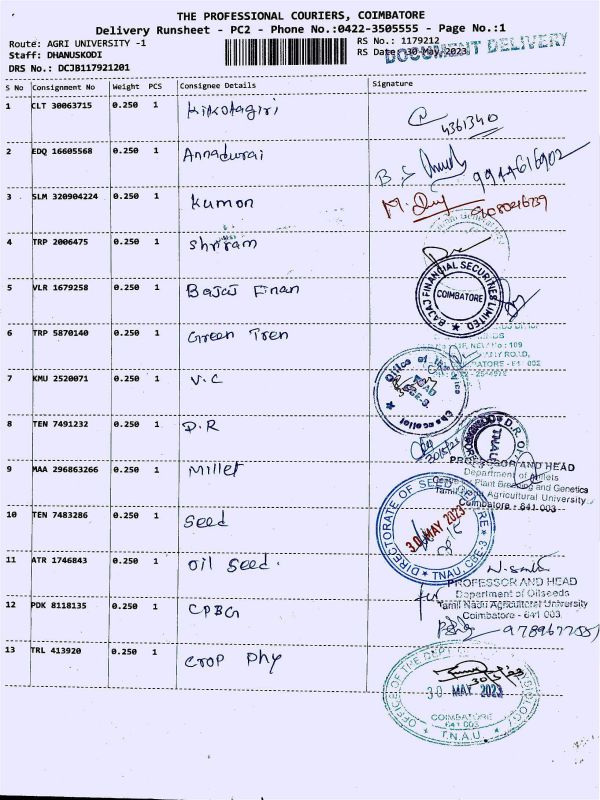 THE PROFESSIONAL COURIERS, COIMBATORE
Delivery Runsheet - PC2 - Phone No.:0422-3505555 - Page No.:1
Route: AGRI UNIVERSITY -1
RS No.: 1179212
Staff: DHANUSKODI
RS Date: 30-May-2023
DOCUMENT DELIVERY
DRS No.: DCJB117921201
S No Consignment No Weight PCS Consignee Details Signature
1 CLT 30063715 0.250 1 Kikotagiri
4361340
2 EDQ 16605568 0.250 1 Annadurai
9944616902
3 SLM 320904224 0.250 1 Kumon
4 TRP 2006475 0.250 1 Shriram
5 VLR 1679258 0.250 1 Bajaj Finan
BAJAJ FINANCIAL SECURITIES LIMITED
COIMBATORE
6 TRP 5870140 0.250 1 Green Tren
7 KMU 2520071 0.250 1 V.C
Office of the Vice Chancellor
8 TEN 7491232 0.250 1 D.R
30/5/23
TNAU
9 MAA 296863266 0.250 1 Millet
PROFESSOR AND HEAD
Department of Millets
Centre for Plant Breeding and Genetics
Tamil Nadu Agricultural University
Coimbatore - 641 003
10 TEN 7483286 0.250 1 Seed
DIRECTORATE OF SEED CENTRE
30 MAY 2023
TNAU, CBE-3
11 ATR 1746843 0.250 1 Oil Seed.
PROFESSOR AND HEAD
Department of Oilseeds
Tamil Nadu Agricultural University
Coimbatore - 641 003
12 PDK 8118135 0.250 1 CPBG
13 TRL 413920 0.250 1 Crop Phy
30/5/23
30 MAY 2023
COIMBATORE
641 003
T.N.A.U.